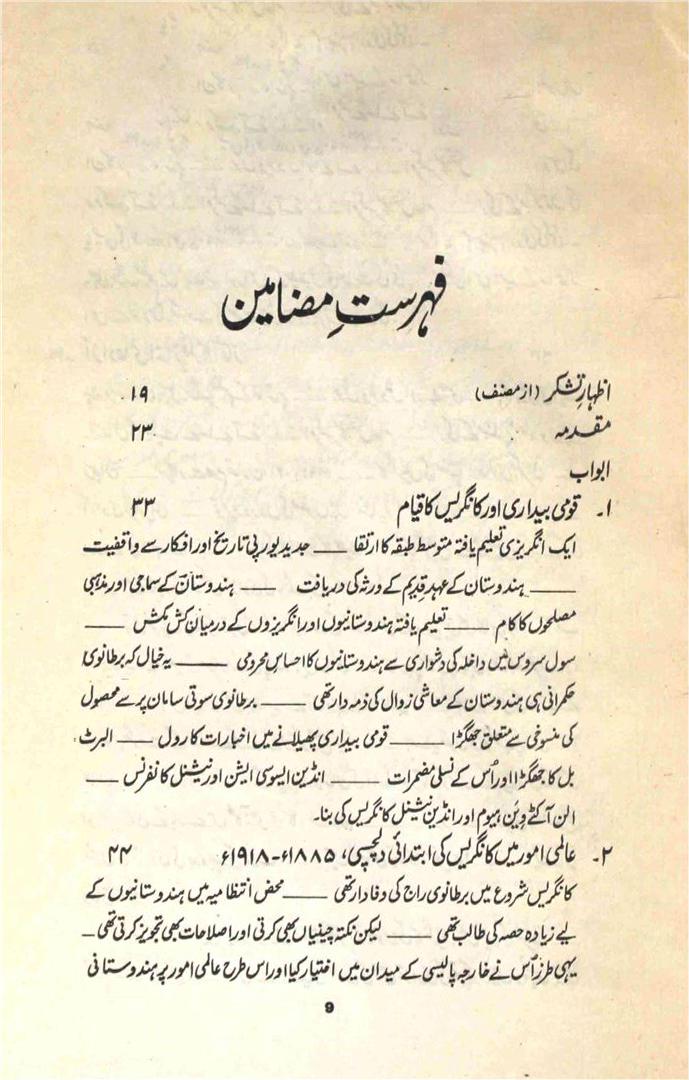 فہرستِ مضامین
اظہارِ تشکر (از مصنف) ۱۹
مقدمہ ۲۳
ابواب
۱۔ قومی بیداری اور کانگریس کا قیام ۳۳
ایک انگریزی تعلیم یافتہ متوسط طبقہ کا ارتقا —— جدید یورپی تاریخ اور افکار سے واقفیت
—— ہندوستان کے عہدِ قدیم کے ورثہ کی دریافت —— ہندوستان کے سماجی اور مذہبی
مصلحوں کا کام —— تعلیم یافتہ ہندوستانیوں اور انگریزوں کے درمیان کش مکش ——
سول سروس میں داخلہ کی دشواری سے ہندوستانیوں کا احساسِ محرومی —— یہ خیال کہ برطانوی
حکمرانی ہی ہندوستان کے معاشی زوال کی ذمہ دار تھی —— برطانوی سوتی سامان پر سے محصول
کی منسوخی سے متعلق جھگڑا —— قومی بیداری پھیلانے میں اخبارات کا رول —— البرٹ
بل کا جھگڑا اور اُس کے نسلی مضمرات —— انڈین ایسوسی ایشن اور نیشنل کانفرنس ——
الن آکٹے وین ہیوم اور انڈین نیشنل کانگریس کی بنا۔
۲۔ عالمی امور میں کانگریس کی ابتدائی دلچسپی، ۱۸۸۵ء-۱۹۱۸ء ۴۴
کانگریس شروع میں برطانوی راج کی وفادار تھی —— محض انتظامیہ میں ہندوستانیوں کے
لیے زیادہ حصہ کی طالب تھی —— لیکن نکتہ چینیاں بھی کرتی اور اصلاحات بھی تجویز کرتی تھی —
یہی طرز اُس نے خارجہ پالیسی کے میدان میں اختیار کیا اور اس طرح عالمی امور پر ہندوستانی
9